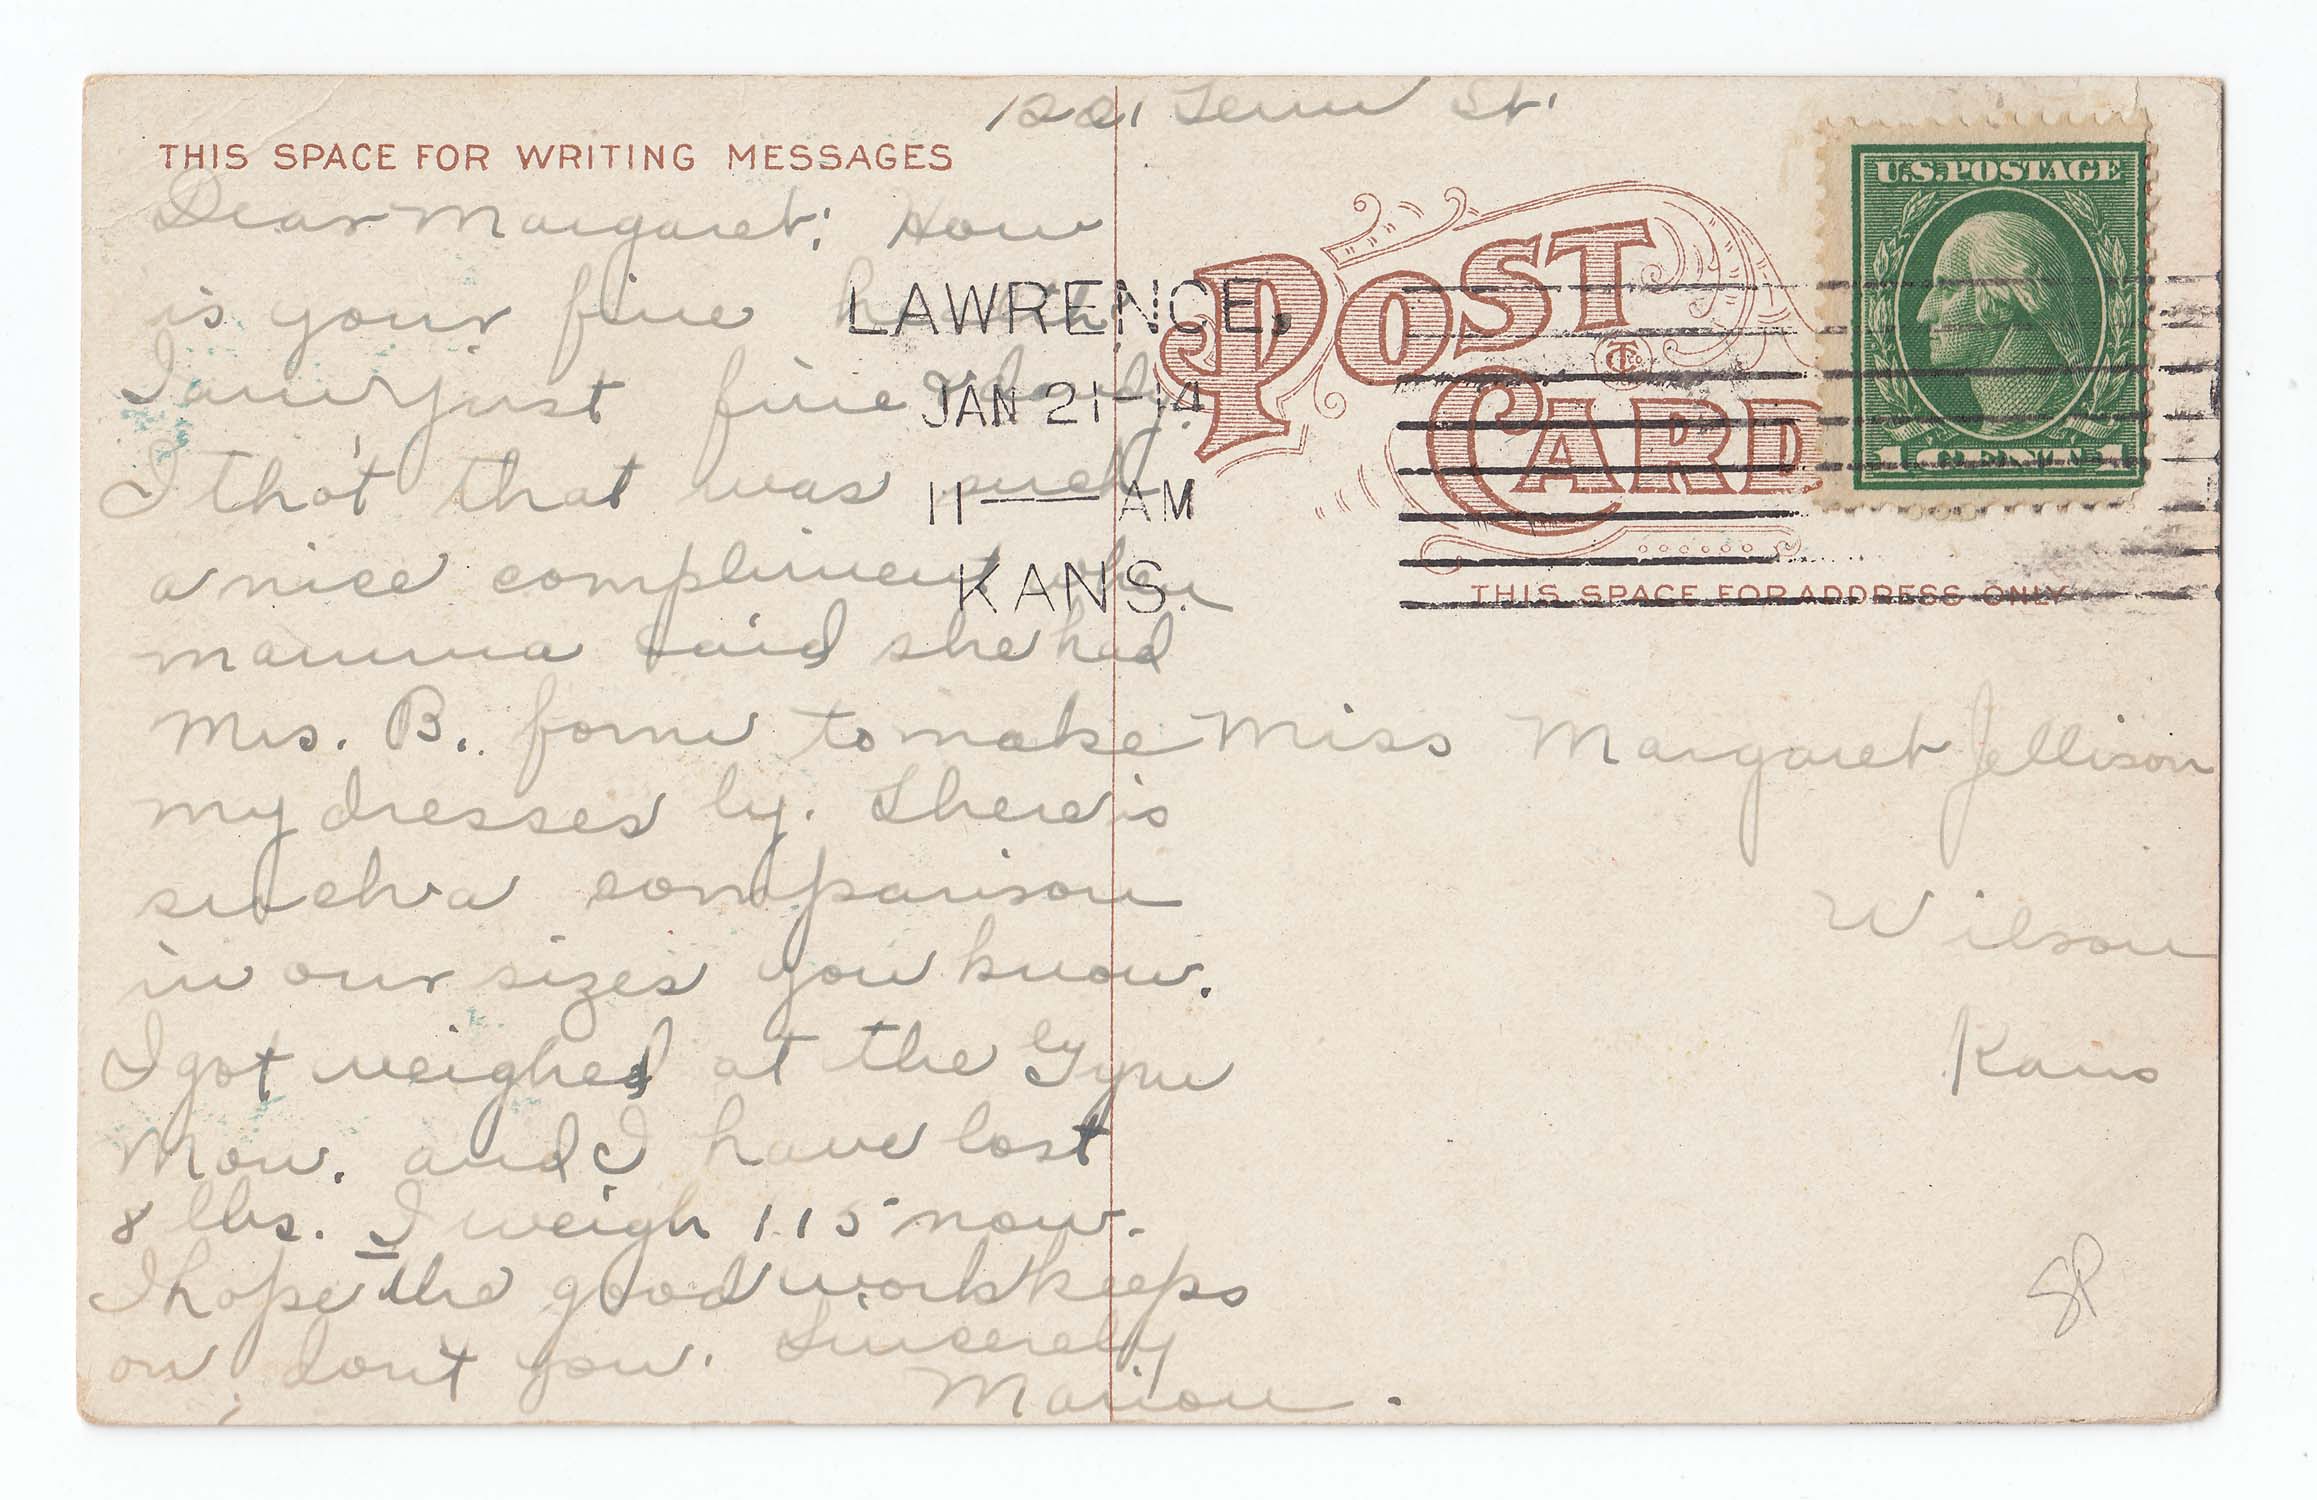 1221 Tenn St.
THIS SPACE FOR WRITING MESSAGES
Dear Margaret: How
is your fine health
I am just fine & dandy.
I tho't that was such
a nice compliment when
mamma said she had
Mrs. B. form to make
my dresses by. There is
such a comparison
in our sizes you know.
I got weighed at the Gym
Mon. and I have lost
8 lbs. I weigh 115 now.
I hope the good work keeps
on, don't you. Sincerely
Marion.
LAWRENCE,
JAN 21-14
11 — AM
KANS.
POST
CARD
U.S. POSTAGE
1 CENT 1
THIS SPACE FOR ADDRESS ONLY
Miss Margaret Jellison
Wilson
Kans